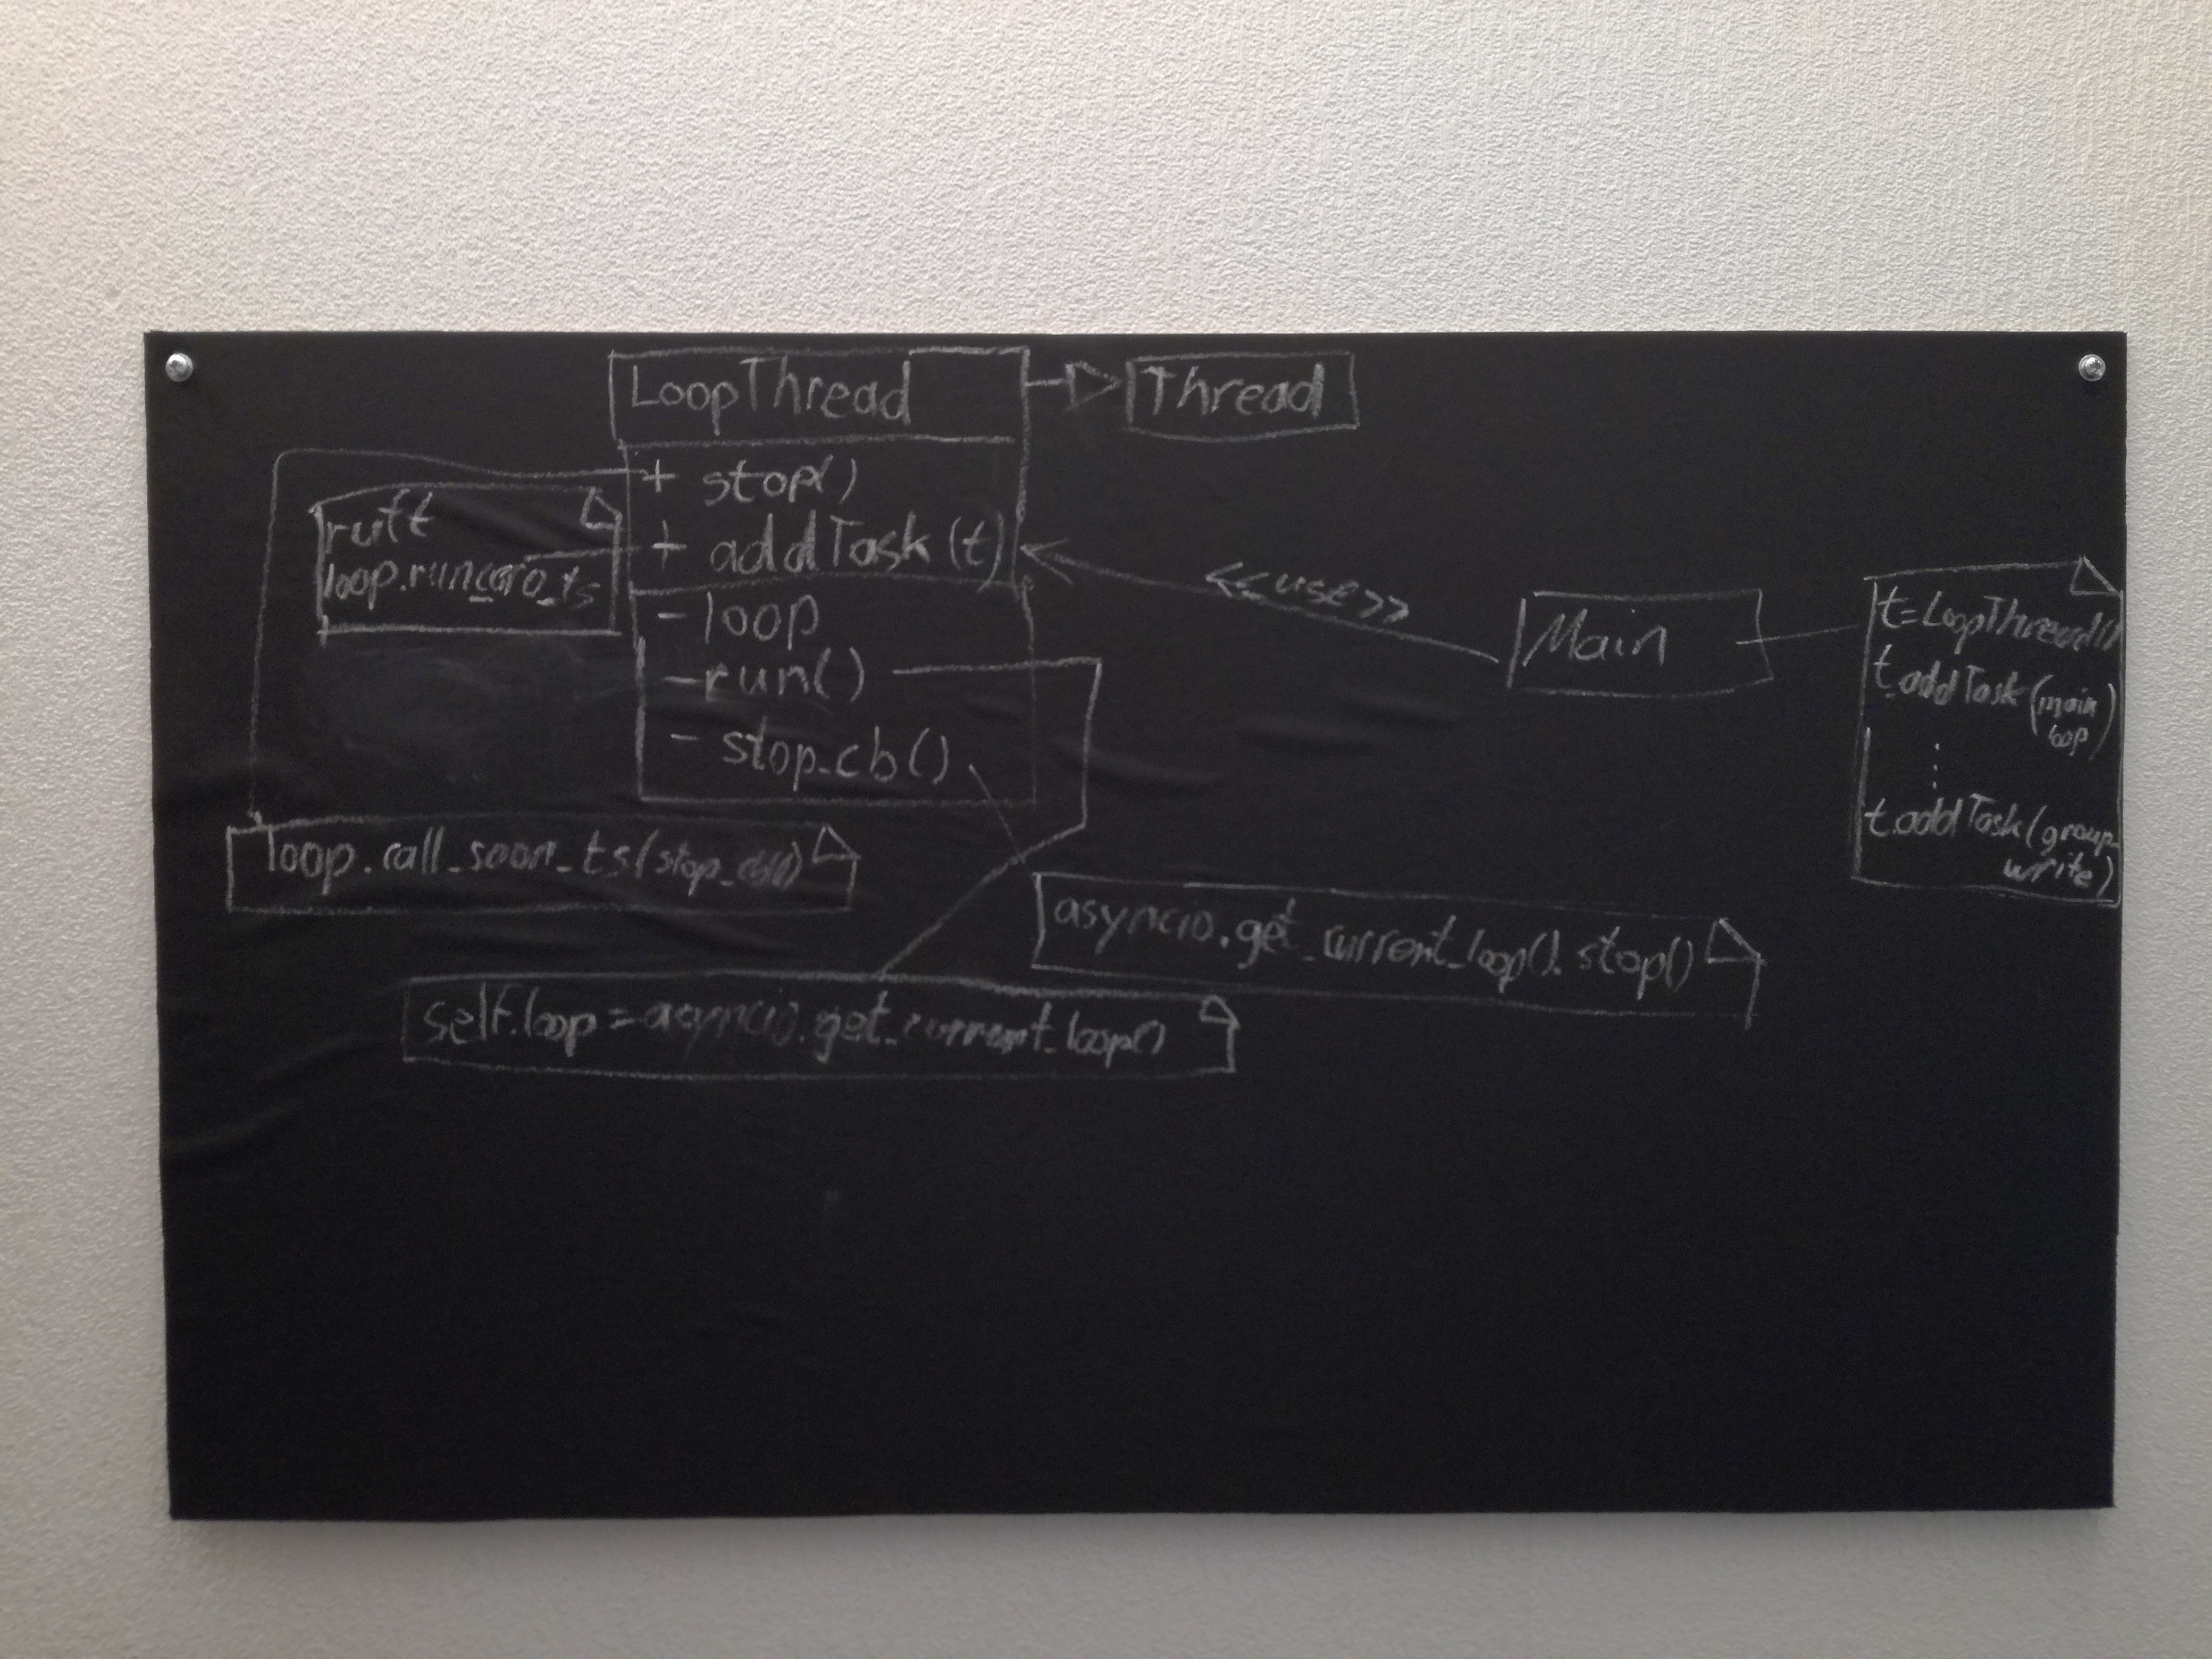 LoopThread
Thread
+ stop()
+ addTask(t)
- loop
- run()
- stop_cb()
ruft
loop.run_coro_ts
<<use>>
Main
t=LoopThread()
t.addTask(main
loop)
⋮
t.addTask(group_
write)
loop.call_soon_ts(stop_cb())
asyncio.get_current_loop().stop()
self.loop = asyncio.get_current_loop()